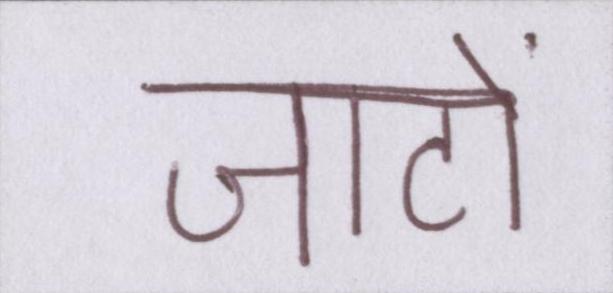 जाटों